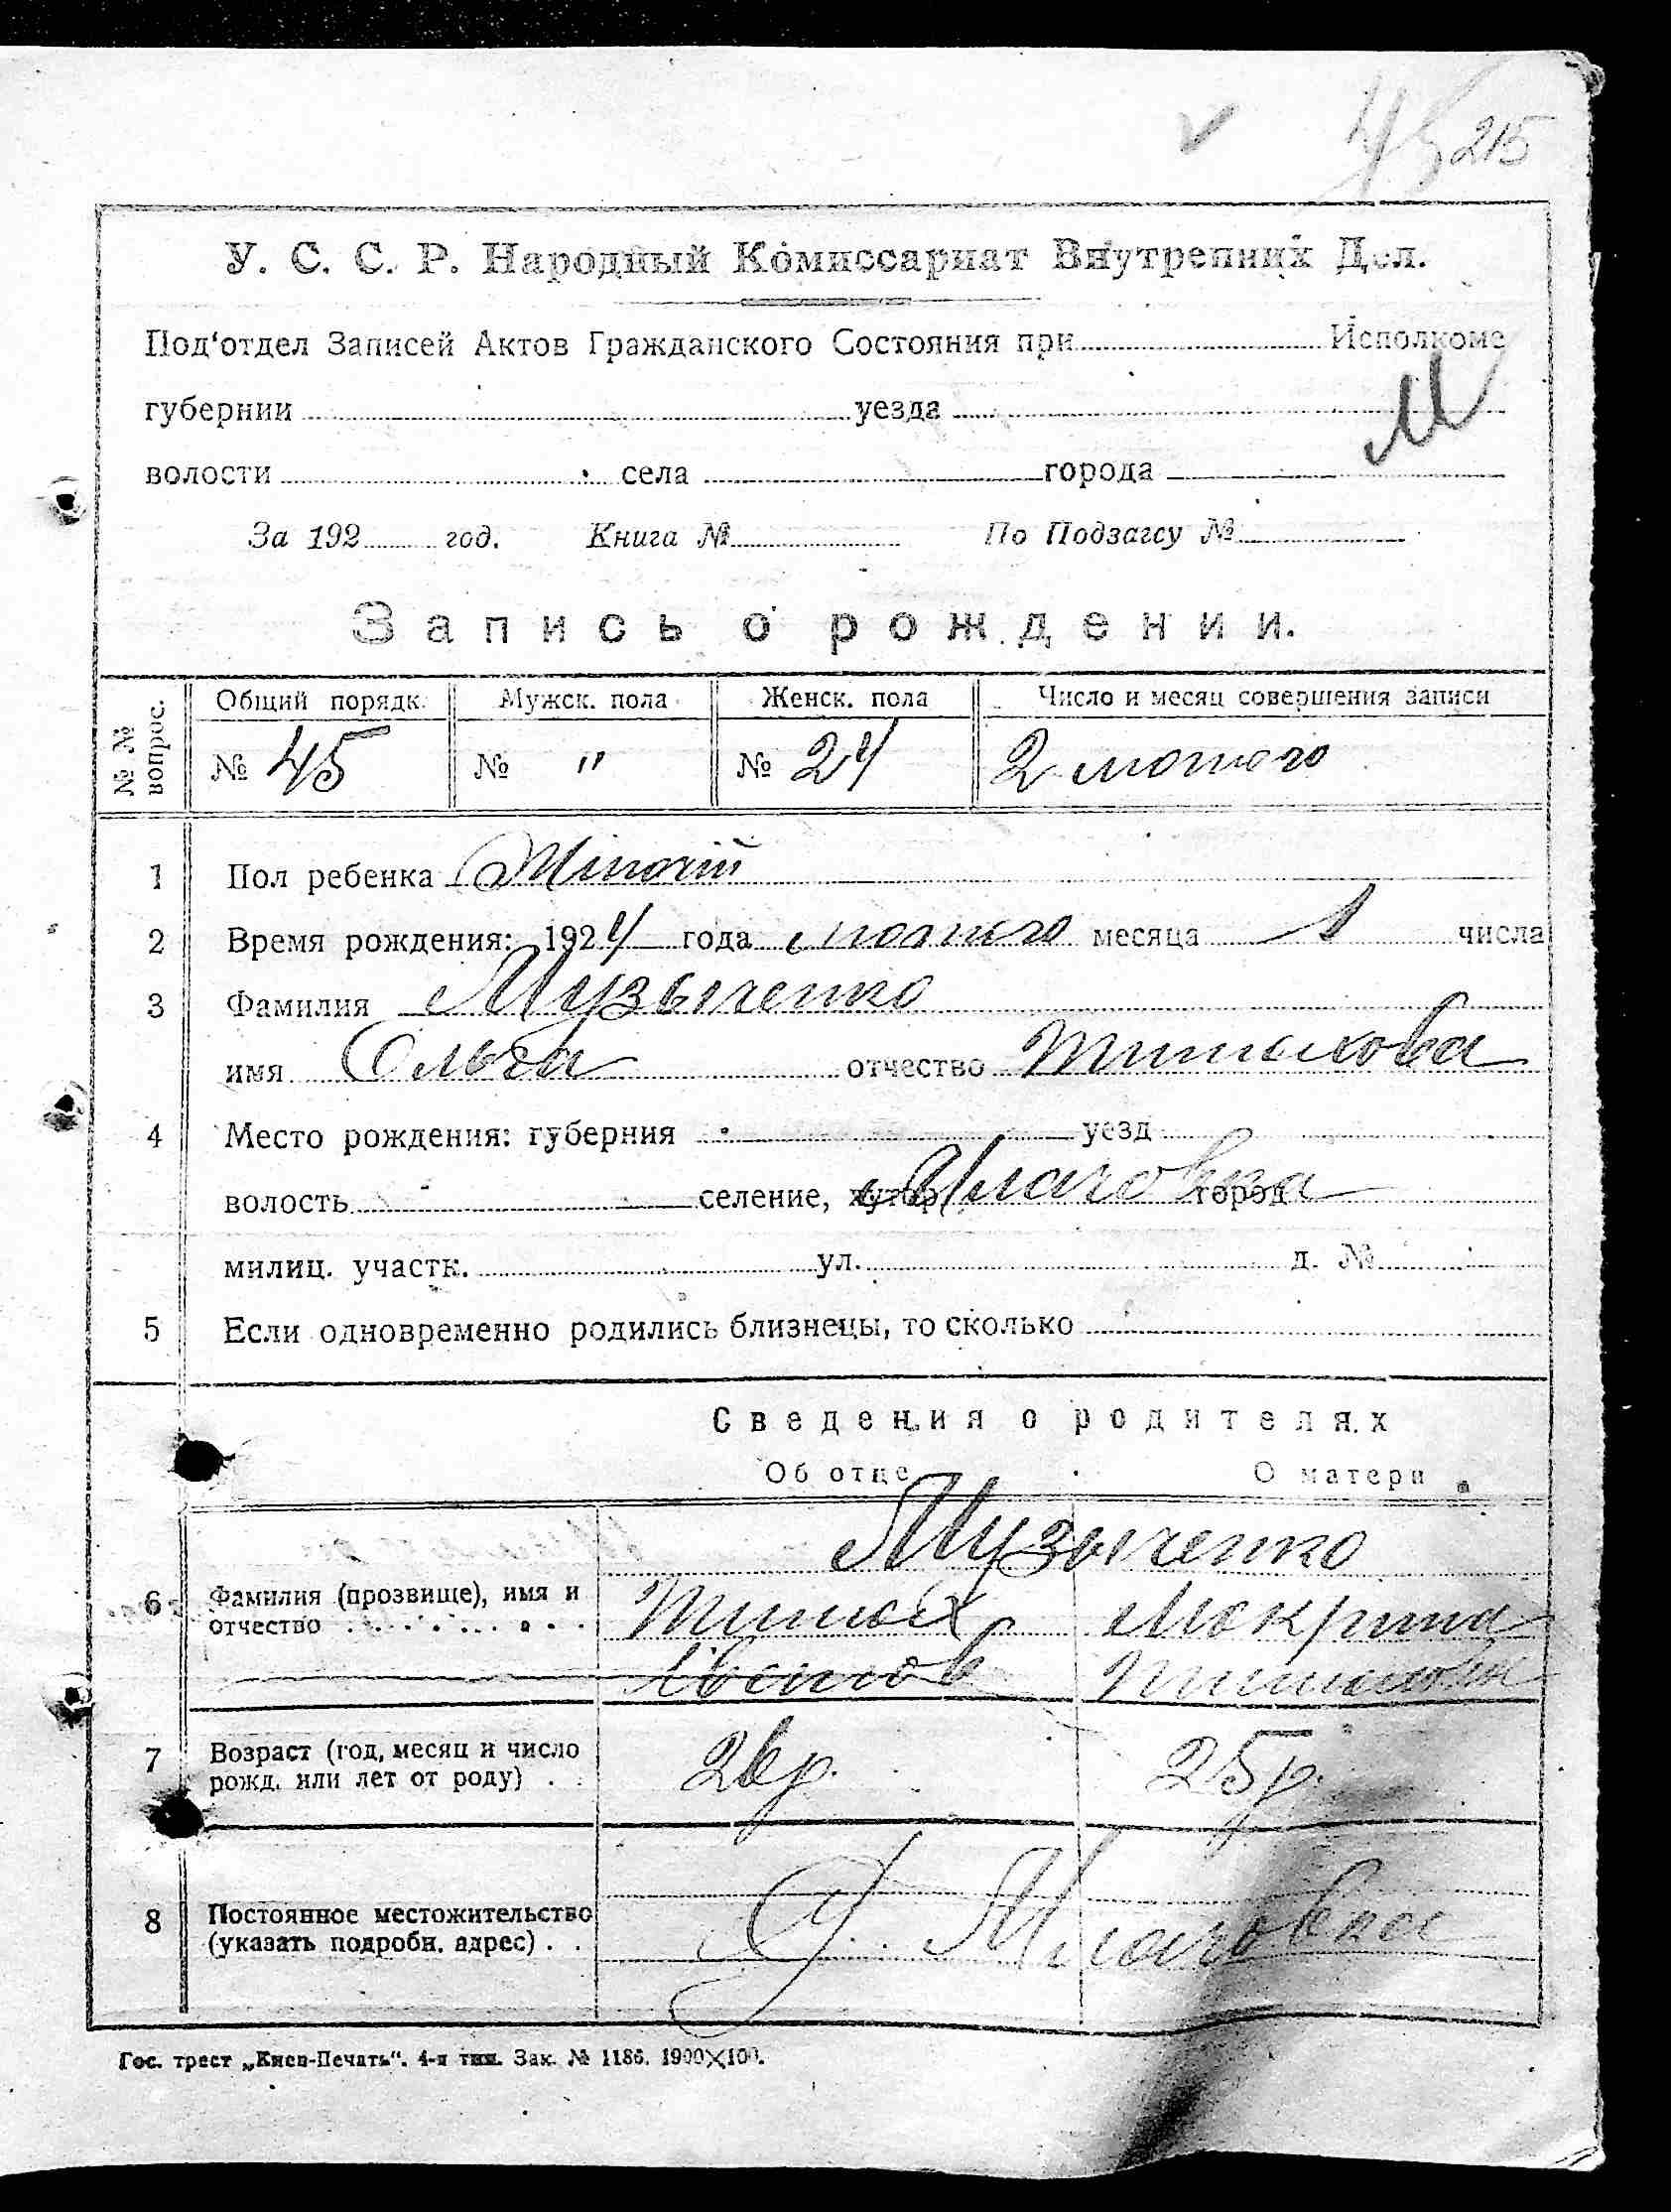 45 215
У. С. С. Р. Народный Комиссариат Внутренних Дел.
Под‘отдел Записей Актов Гражданского Состояния при Исполкоме
губернии уезда
М
волости села города
За 192 год. Книга № По Подзагсу №
Запись о рождении.
№ № вопрос.
Общий порядк. Мужск. пола Женск. пола Число и месяц совершения записи
№ 45 № " № 24 2 лютого
1 Пол ребенка Жіночій
2 Время рождения: 1924 года лютого месяца 1 числа
3 Фамилия Музыченко
имя Ольга отчество Тимохова
4 Место рождения: губерния уезд
волость селение, хутор город
милиц. участк. ул. д. №
5 Если одновременно родились близнецы, то сколько
Сведения о родителях
Об отце О матери
Музыченко
6 Фамилия (прозвище), имя и Тимох Мокрина
отчество
7 Возраст (год, месяц и число 26р. 25р.
рожд. или лет от роду) . .
8 Постоянное местожительство
(указать подробн. адрес) . .
Гос. трест „Киев-Печать“. 4-я тип. Зак. № 1186. 1900×100.